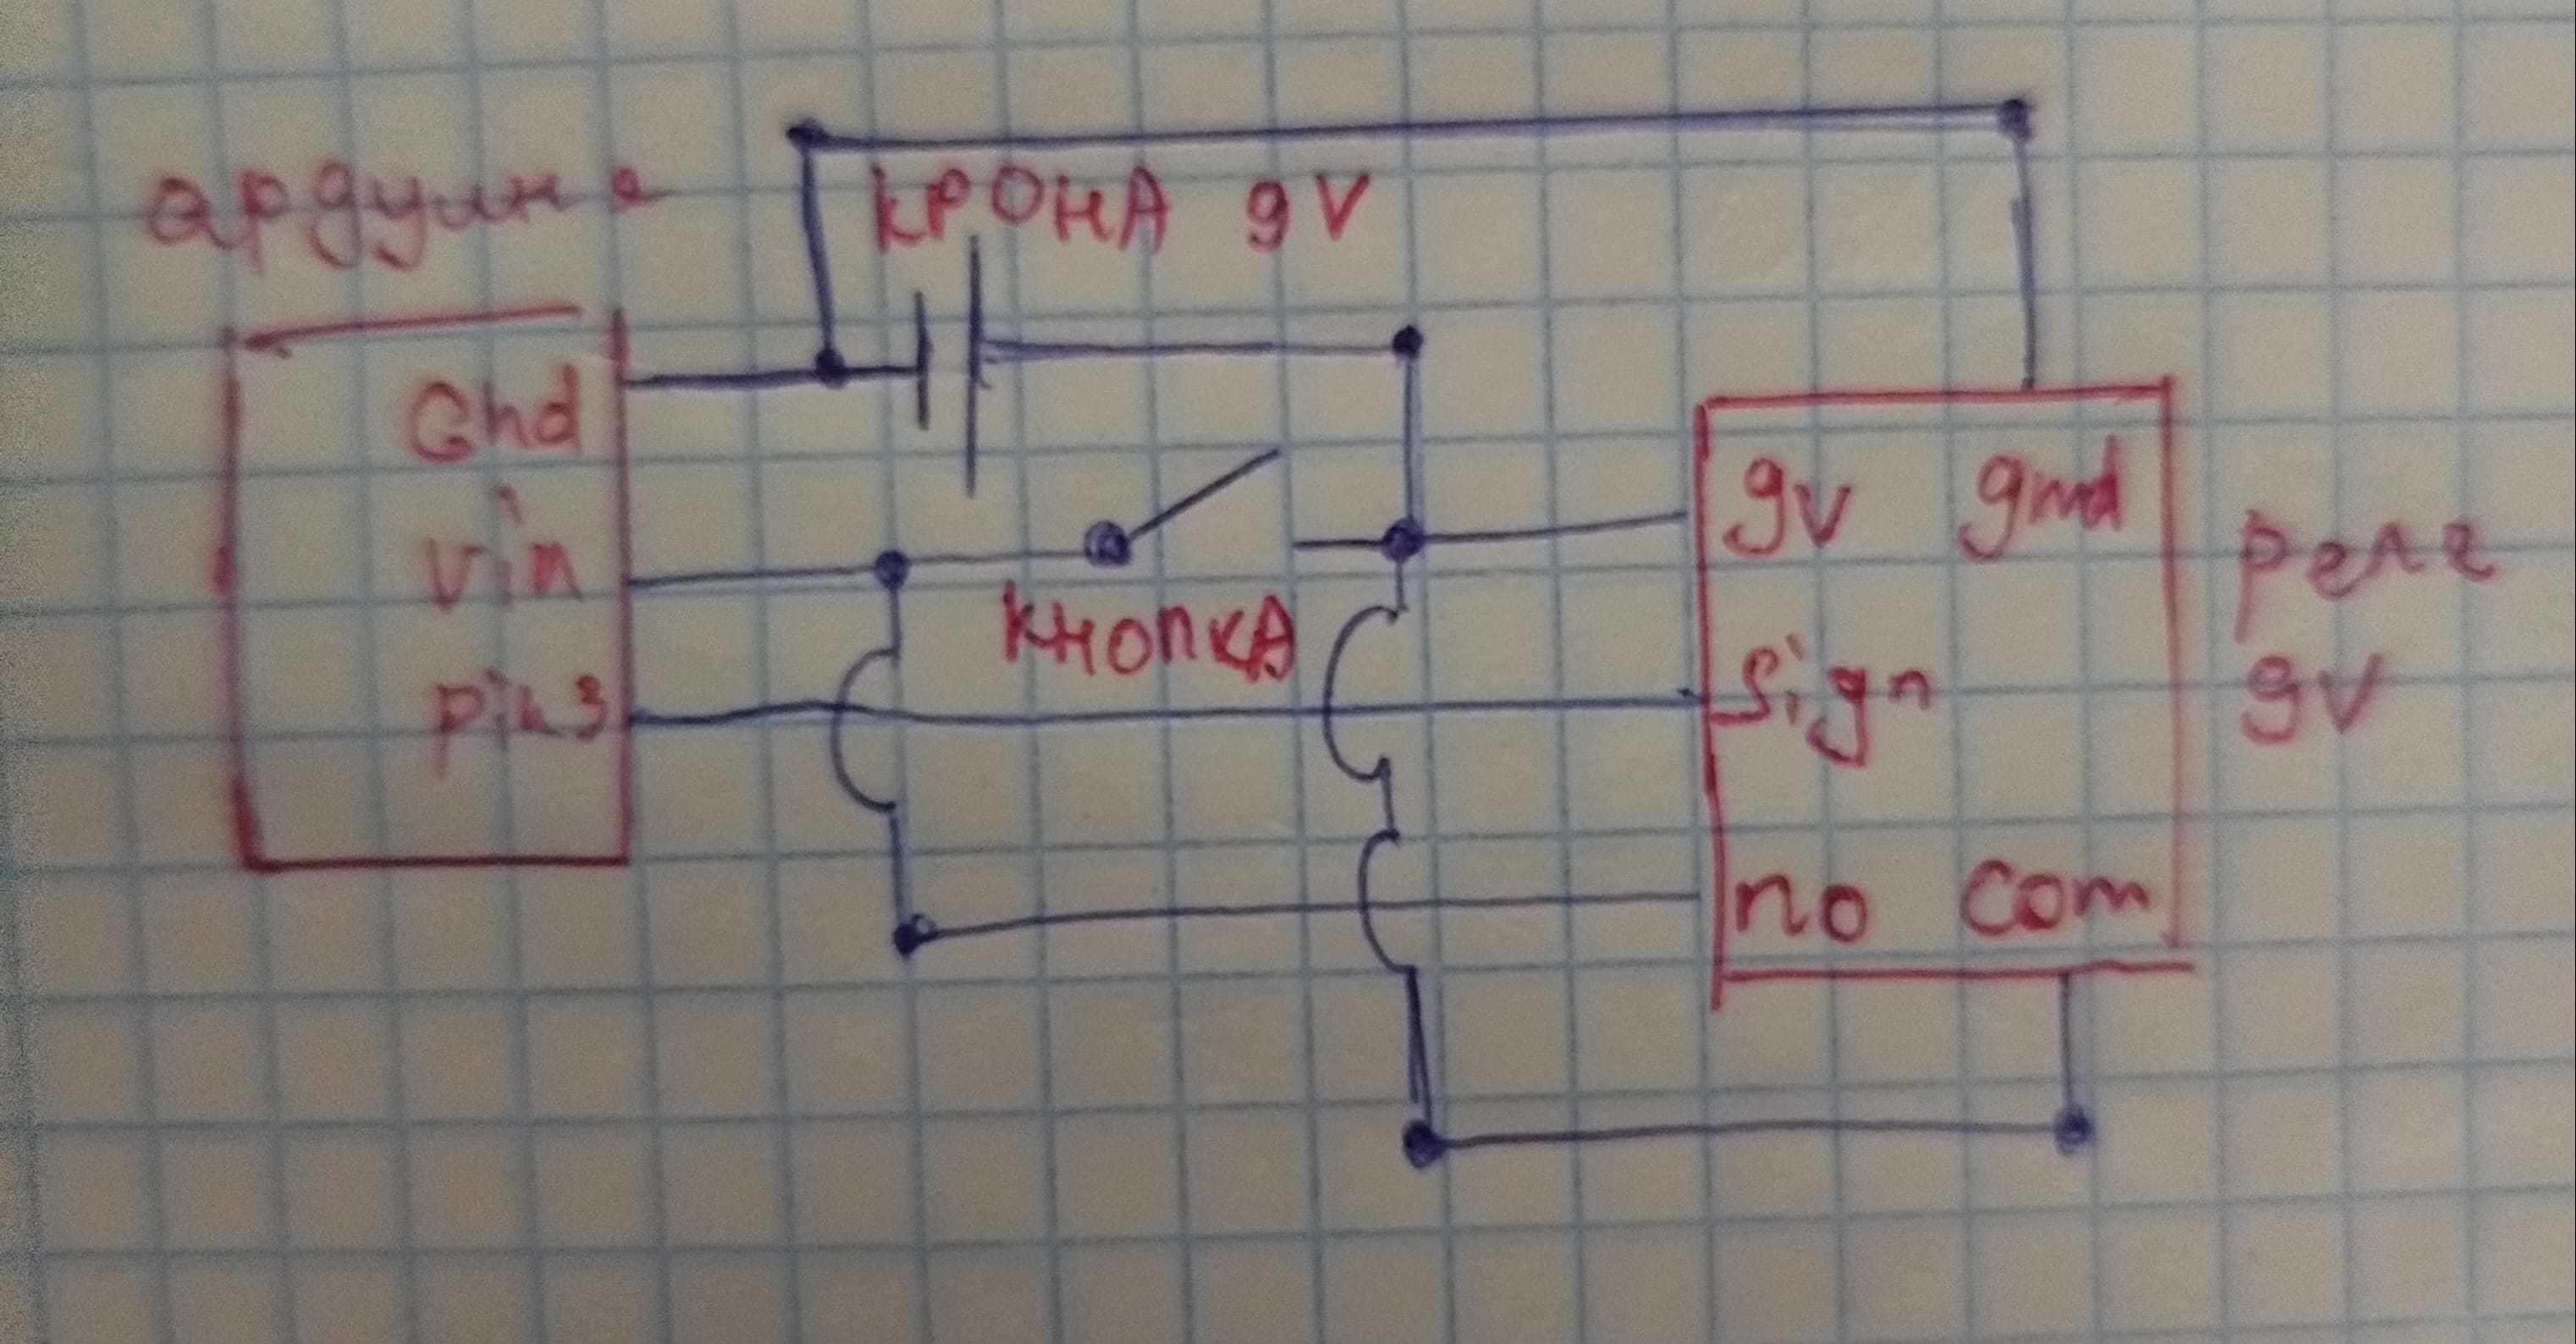 ардуино
КРОНА 9V
Gnd
Vin
pin3
КНОПКА
9V gnd
Sign
no com
реле
9V